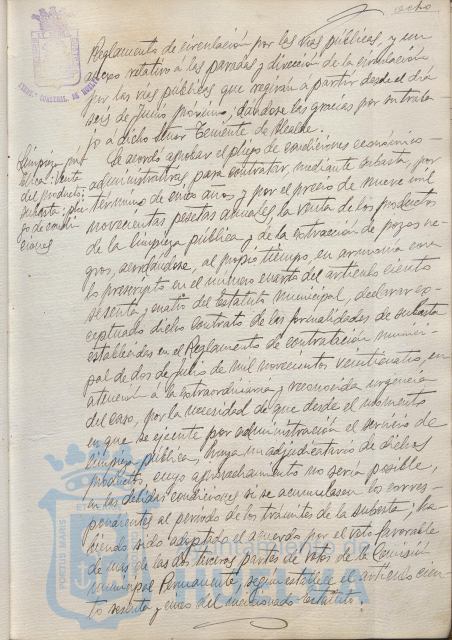 ocho
Reglamento de circulación por las vías públicas y un
anexo relativo á las paradas y dirección de la circulación
por las vías públicas que regirán á partir desde el día
seis de Julio próximo, dándose las gracias por su traba-
jo a dicho señor Teniente de Alcalde.
Limpieza pú-
blica: Venta
del producto:
subasta: plie-
go de condi-
ciones
Se acordó aprobar el pliego de condiciones económico-
administrativas para contratar, mediante subasta, por
término de cinco años y por el precio de nueve mil
novecientas pesetas anuales, la venta de los productos
de la limpieza pública y de la extracción de pozos ne-
gros, acordándose, al propio tiempo, en armonía con
lo prescripto en el número cuarto del artículo ciento
sesenta y cuatro del Estatuto Municipal, declarar ex-
ceptuado dicho contrato de las formalidades de subasta
establecidas en el Reglamento de contratación munici-
pal de dos de Julio de mil novecientos veinticuatro, en
atención á la extraordinaria y reconocida urgencia
del caso, por la necesidad de que desde el momento
en que se ejecute por administración el servicio de
limpieza pública, haya un adjudicatario de dichos
productos, cuyo aprovechamiento no sería posible,
en las debidas condiciones si se acumulasen los corres-
pondientes al período de los trámites de la subasta; ha-
biendo sido adoptado el acuerdo por el voto favorable
de más de las dos terceras partes de votos de la Comisión
Municipal Permanente, según establece el artículo cien-
to sesenta y cinco del mencionado Estatuto.
PORTUS MARIS
Ayuntamiento de
HUELVA